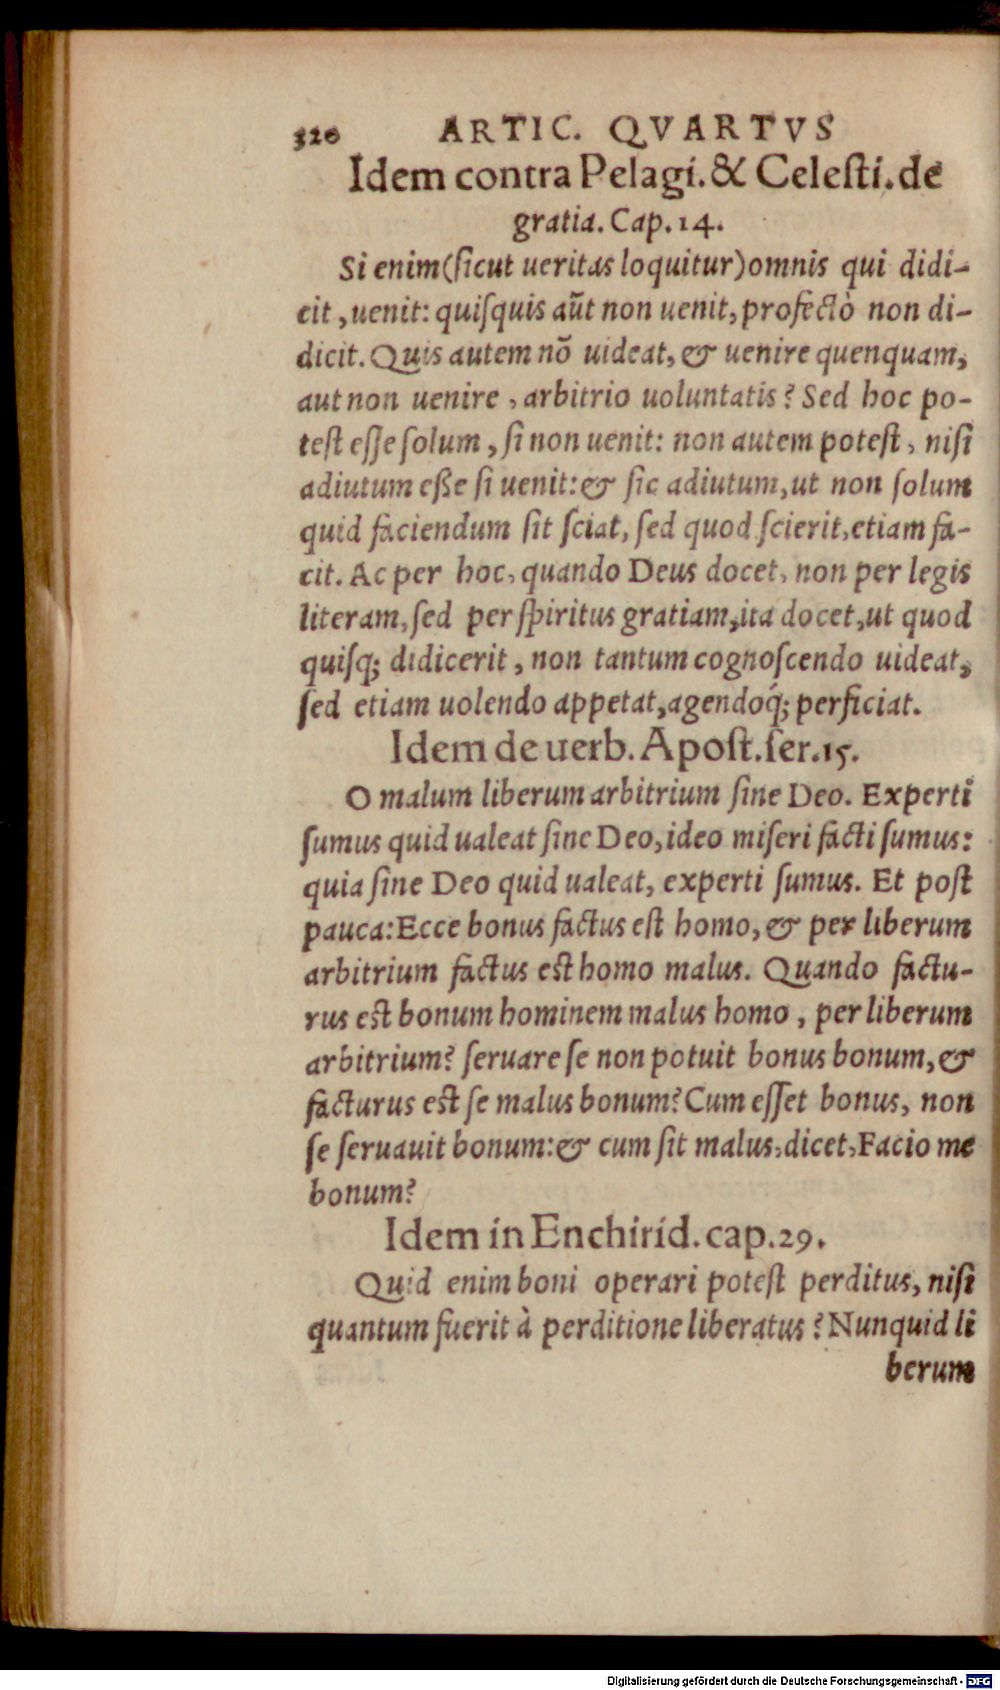 320 ARTIC. QVARTVS
Idem contra Pelagi. & Celesti. de
gratia. Cap. 14.
Si enim (ſicut ueritas loquitur) omnis qui didi-
cit, uenit: quiſquis aūt non uenit, profectò non di-
dicit. Quis autem nō uideat, & uenire quenquam,
aut non uenire, arbitrio uoluntatis? Sed hoc po-
teſt eſſe ſolum, ſi non uenit: non autem poteſt, niſi
adiutum eße ſi uenit: & ſic adiutum, ut non ſolum
quid faciendum ſit ſciat, ſed quod ſcierit, etiam fa-
cit. Ac per hoc, quando Deus docet, non per legis
literam, ſed per ſpiritus gratiam, ita docet, ut quod
quiſq; didicerit, non tantum cognoſcendo uideat,
ſed etiam uolendo appetat, agendoq́; perficiat.
Idem de uerb. Apoſt. ſer. 15.
O malum liberum arbitrium ſine Deo. Experti
ſumus quid ualeat ſine Deo, ideo miſeri facti ſumus:
quia ſine Deo quid ualeat, experti ſumus. Et poſt
pauca: Ecce bonus factus eſt homo, & per liberum
arbitrium factus eſt homo malus. Quando factu-
rus eſt bonum hominem malus homo, per liberum
arbitrium? ſeruare ſe non potuit bonus bonum, &
facturus eſt ſe malus bonum? Cum eſſet bonus, non
ſe ſeruauit bonum: & cum ſit malus, dicet, Facio me
bonum?
Idem in Enchirid. cap. 29.
Quid enim boni operari poteſt perditus, niſi
quantum fuerit à perditione liberatus? Nunquid li
berum
Digitalisierung gefördert durch die Deutsche Forschungsgemeinschaft - DFG